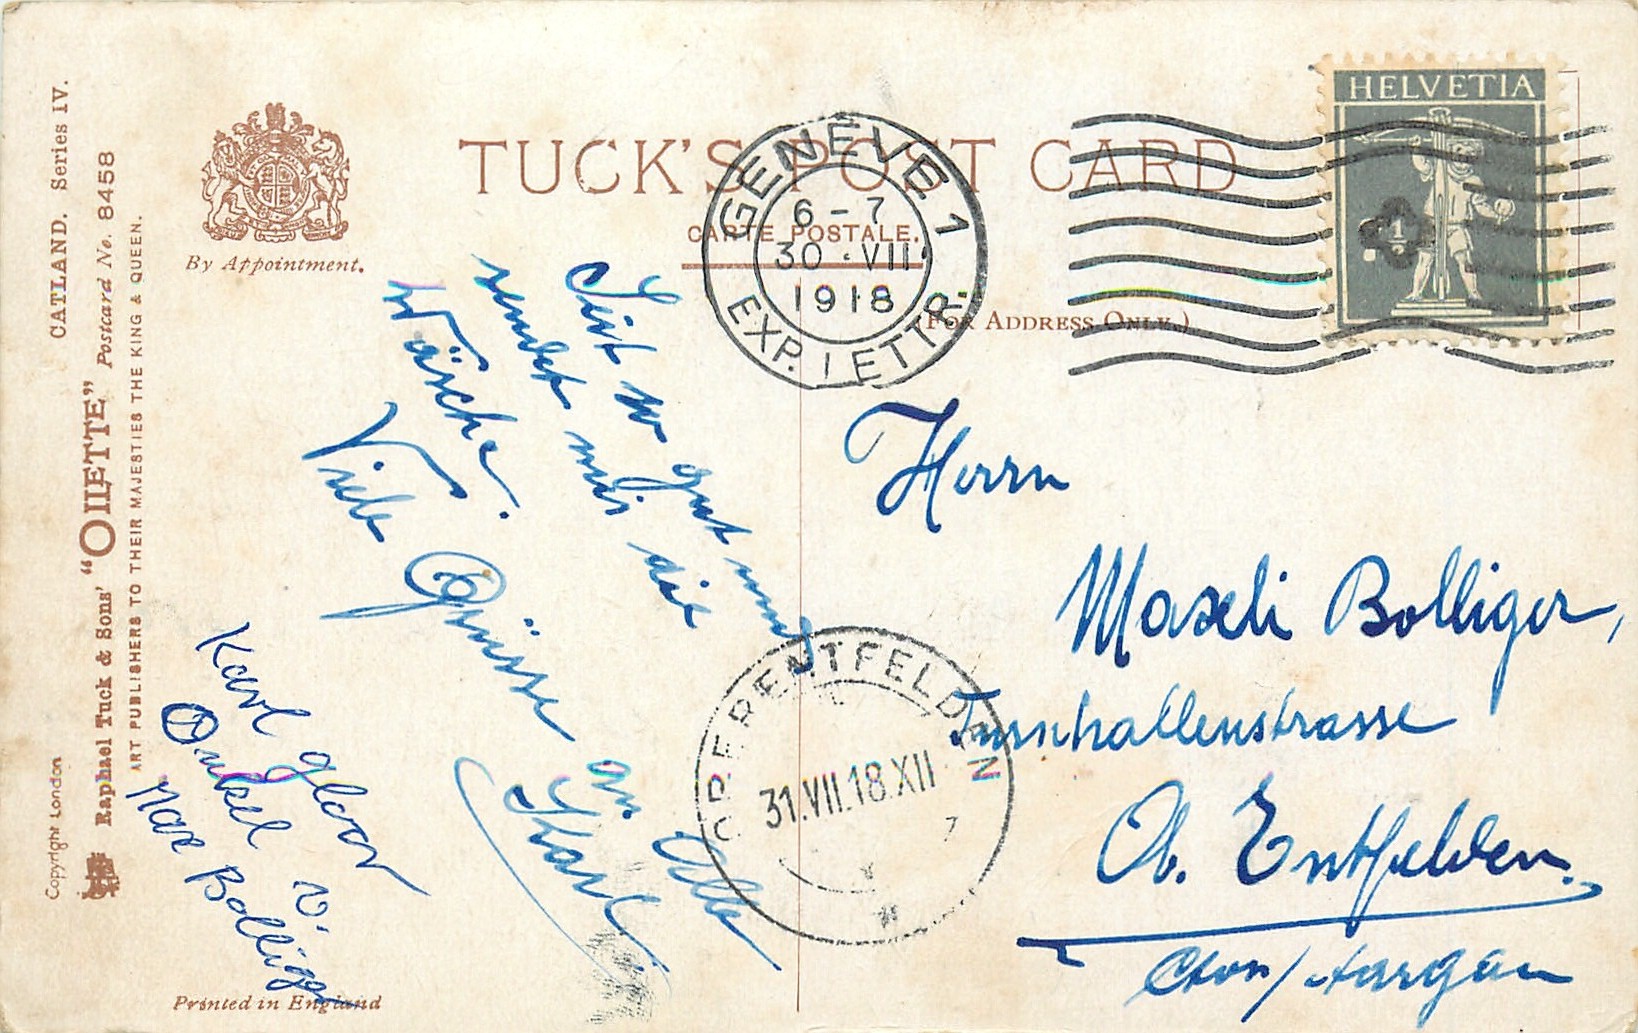 CATLAND. Series IV.
Raphael Tuck & Sons' "OILETTE" Postcard No. 8458
ART PUBLISHERS TO THEIR MAJESTIES THE KING & QUEEN.
Copyright London
By Appointment.
TUCK'S POST CARD
CARTE POSTALE.
(FOR ADDRESS ONLY.)
GENÈVE 1
6-7
30.VII
1918
EXP. LETTR.
HELVETIA
Seit so gut und
sendet mir die
Wäsche.
Viele Grüsse an Alle
Karl
Karl Gloor
Onkel v.
Max Bolliger
Herrn
Maxeli Bolliger,
Turnhallenstrasse
Ob. Entfelden.
Cton/Aargau
OBERENTFELDEN
31.VII.18.XII
Printed in England